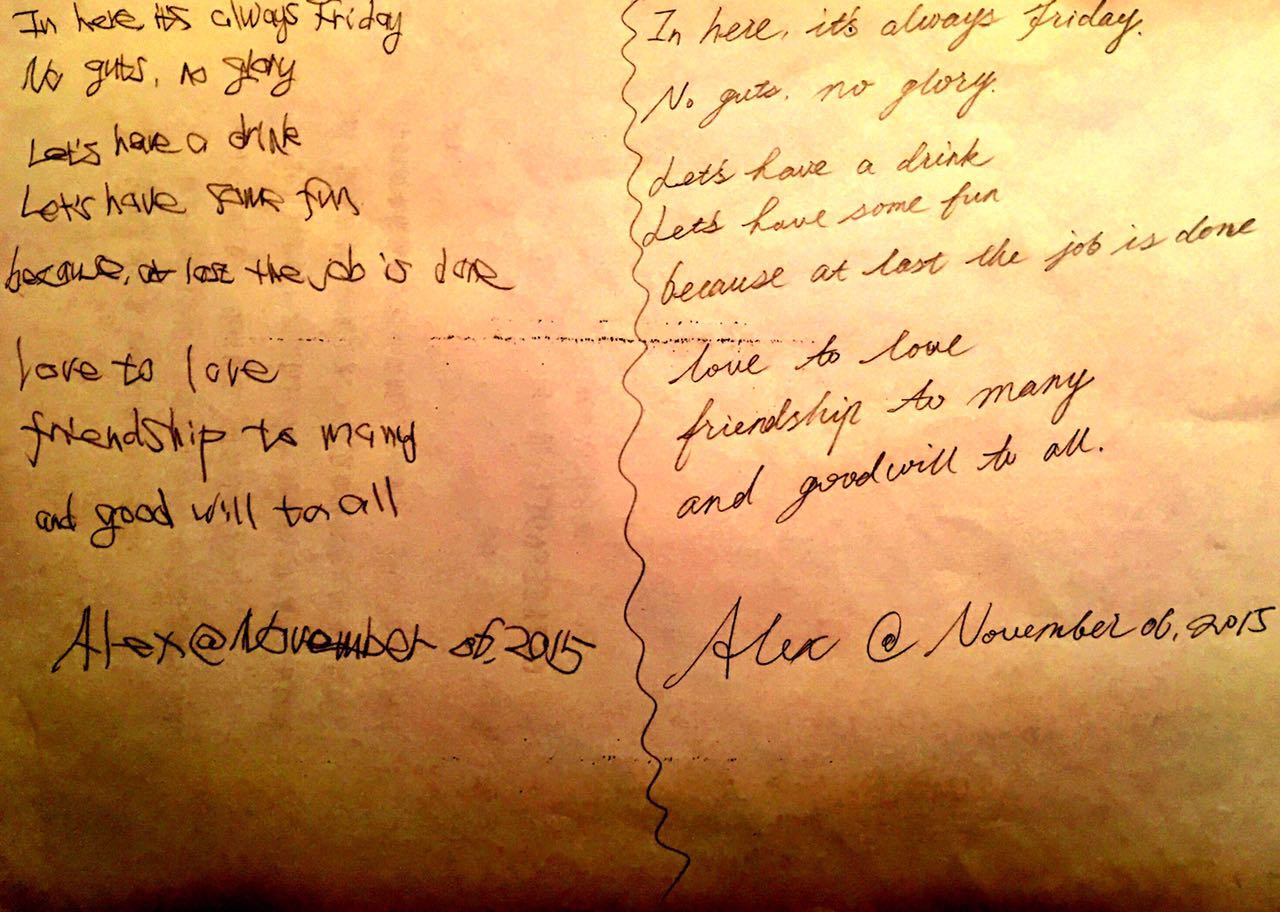 In here it's always Friday
No guts, no glory
Let's have a drink
Let's have some fun
because, at last the job is done
love to love
friendship to many
and good will to all
Alex@November 06, 2015
In here, it's always Friday.
No guts, no glory.
Let's have a drink
Let's have some fun
because at last the job is done
love to love
friendship to many
and goodwill to all.
Alex @ November 06, 2015